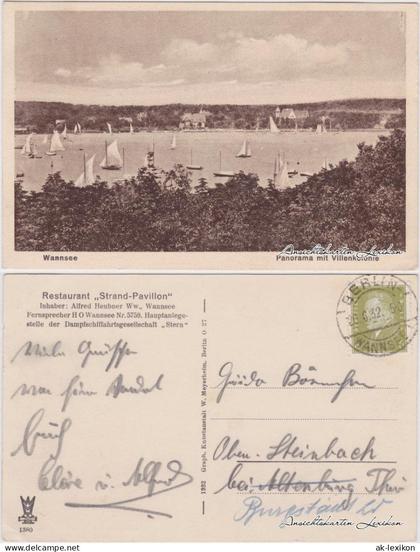 Wannsee
Panorama mit Villenkolonie
Ansichtskarten Lexikon
Restaurant „Strand-Pavillon"
Inhaber: Alfred Heubner Ww., Wannsee
Fernsprecher H O Wannsee Nr. 5750. Hauptanlege-
stelle der Dampfschiffahrtsgesellschaft „Stern"
BERLIN
WANNSEE
Viele Grüsse
Euch
Cläre u. Alfred
1380
1932 Graph. Kunstanstalt W. Meyerheim, Berlin O 27
Guido
Ober-Steinbach
bei Altenburg Thür
Burgstädt
Ansichtskarten Lexikon
© ak-lexikon.de